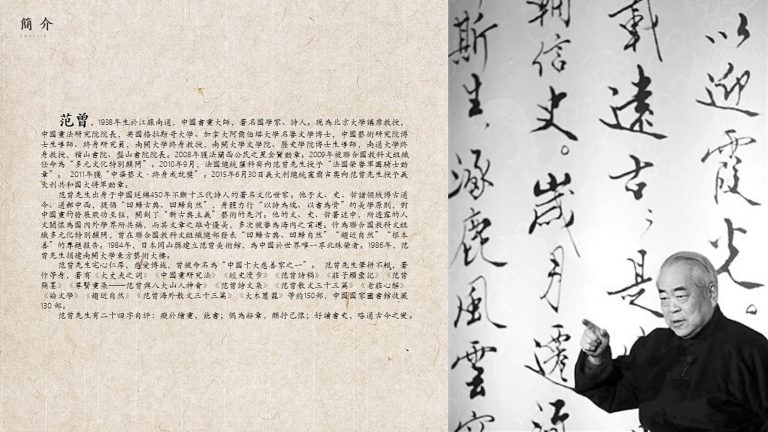 簡介
范曾，1938年生於江蘇南通，中國書畫大師，著名國學家、詩人。現為北京大學講席教授，
中國畫法研究院院長，英國格拉斯哥大學、加拿大阿爾伯塔大學名譽文學博士，中國藝術研究院博
士生導師、終身研究員，南開大學終身教授，南開大學文學院、歷史學院博士生導師，南通大學終
身教授，惜山書院、盤山書院院長。2008年獲法蘭西公民之星金質勳章。2009年被聯合國教科文組織
任命為“多元文化特別顧問”。2010年9月，法國總統薩科齊向范曾先生授予“法國榮譽軍團騎士勳
章”。2011年獲“中華藝文·終身成就獎”。2015年6月30日義大利總統塞爾吉奧向范曾先生授予義
大利共和國大將軍勳章。
范曾先生出身于中國延綿450年不斷十三代詩人的著名文化世家。他于文、史、哲諸領域博古通
今、通邮中西，提倡“回歸古典、回歸自然”，身體力行“以詩為魂、以書為骨”的美學原則，對
中國畫的發展厥功至偉，開創了“新古典主義”藝術的先河。他的文、史、哲著述中，所透露的人
文關懷為國內外學界所共稱，而其文章之雄奇優美，多次被譽為海內之首選。作為聯合國教科文組
織多元文化特別顧問，曾在聯合國教科文組織總部發表“回歸古典、回歸自然”“趨近自然”“根本
善”的專題報告。1984年，日本岡山縣建立范曾美術館，為中國於世界唯一享此殊榮者。1986年，范
曾先生捐建南開大學東方藝術大樓。
范曾先生宅心仁厚，慈愛博施，曾被命名為“中國十大慈善家之一”。范曾先生筆耕不輟，著
作等身，著有《大丈夫之詞》《中國畫研究法》《趨史漫步》《范曾詩稿》《莊子顯靈記》《范曾
簡墨》《尊賢畫集——范曾與八大山人神會》《范曾詩文集》《范曾散文三十三篇》《老莊心解》
《論文學》《趨近自然》《范曾海外散文三十三篇》《大木葱蘢》等約150部，中國國家圖書館收藏
130部。
范曾先生有二十四字自評：癡於繪畫，能書；偶為辭章，頗抒己懷；好讀書史，略通古今之變。
以迎霞光。
載遠古；是
朝信史。歲月遷
斯生，涿鹿風雲